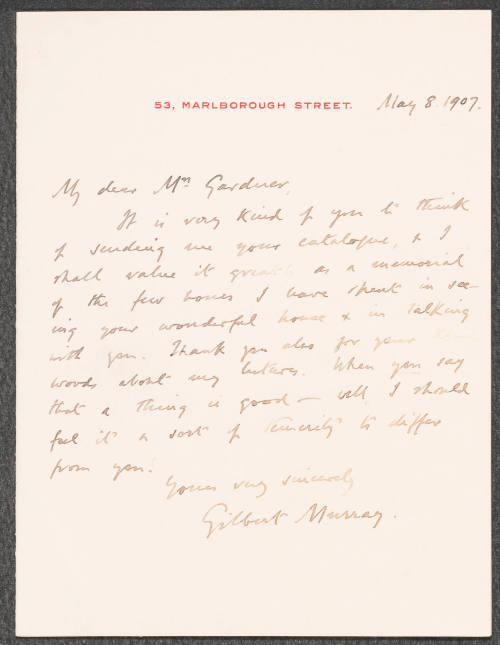 53, MARLBOROUGH STREET. May 8. 1907.
My dear Mrs Gardner,
It is very kind of you to think
of sending me your catalogue, & I
shall value it greatly as a memorial
of the few hours I have spent in see-
ing your wonderful house & in talking
with you. Thank you also for your
words about my lectures. When you say
that a thing is good — well, I should
feel it a sort of temerity to differ
from you!
Yours very sincerely
Gilbert Murray.